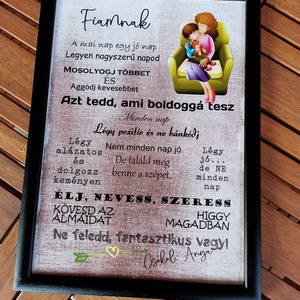 Fiamnak
A mai nap egy jó nap
Legyen nagyszerű napod
MOSOLYOGJ TÖBBET
ÉS
Aggódj kevesebbet
Azt tedd, ami boldoggá tesz
Minden nap
Légy pozitív és ne bánkódj
Légy alázatos és dolgozz keményen
Nem minden nap jó.
De találd meg
benne a szépet.
Légy jó... de NE minden nap
ÉLJ, NEVESS, SZERESS
KÖVESD AZ ÁLMAIDAT
HIGGY MAGADBAN
Ne feledd, fantasztikus vagy!
Csókol: Anya